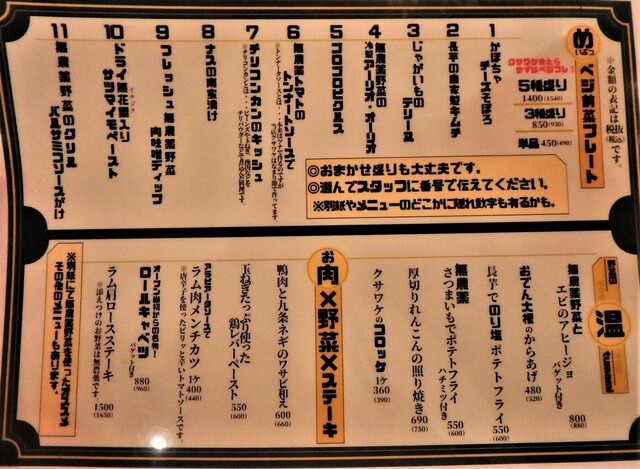 ※金額の表記は税抜(税込)です。
めいぶつ
ベジ前菜プレート
クサワケ来たら
まずはベジプレ!
5種盛り
1400(1540)
3種盛り
850(930)
単品 450(490)
1 かぼちゃ
チーズそぼろ
2 長芋の自家製キムチ
3 じゃがいもの
テリーヌ
4 無農薬野菜の
冷製アーリオ・オーリオ
5 コロコロピクルス
6 無農薬トマトの
トンナートソースで
7 チリコンカンのキッシュ
8 ナスの南蛮漬け
9 フレッシュ無農薬野菜
肉味噌ディップ
10 ドライ無花果入り
イチジク
サツマイモペースト
11 無農薬野菜のグリル
バルサミコソースがけ
◎おまかせ盛りも大丈夫です。
◎選んでスタッフに番号で伝えてください。
※別紙やメニューのどこかに隠れ数字も有るかも。
野菜の
温
tumami
無農薬野菜と
エビのアヒージョ
バゲット付き
880
(880)
おでん大根のからあげ
480
(520)
長芋でのり塩ポテトフライ
550
(600)
無農薬
さつまいもでポテトフライ
ハチミツ付き
550
(600)
厚切りれんこんの照り焼き
690
(750)
クサワケのコロッケ
1ケ
360
(390)
お肉×野菜×ステーキ
鴨肉と九条ネギのワサビ和え
600
(660)
玉ねぎたっぷり使った
鶏レバーペースト
550
(600)
アラビアータソースで
ラム肉メンチカツ
1ケ
400
(440)
※唐辛子を使ったピリッと辛いトマトソースです。
オープン当初からの名物!
ロールキャベツ
バゲット付き
880
(960)
ラム肩ロースステーキ
※添えつけのお野菜は無農薬です。
1500
(1650)
※別紙にて無農薬野菜を使ったオススメ
その他のメニューもあります。